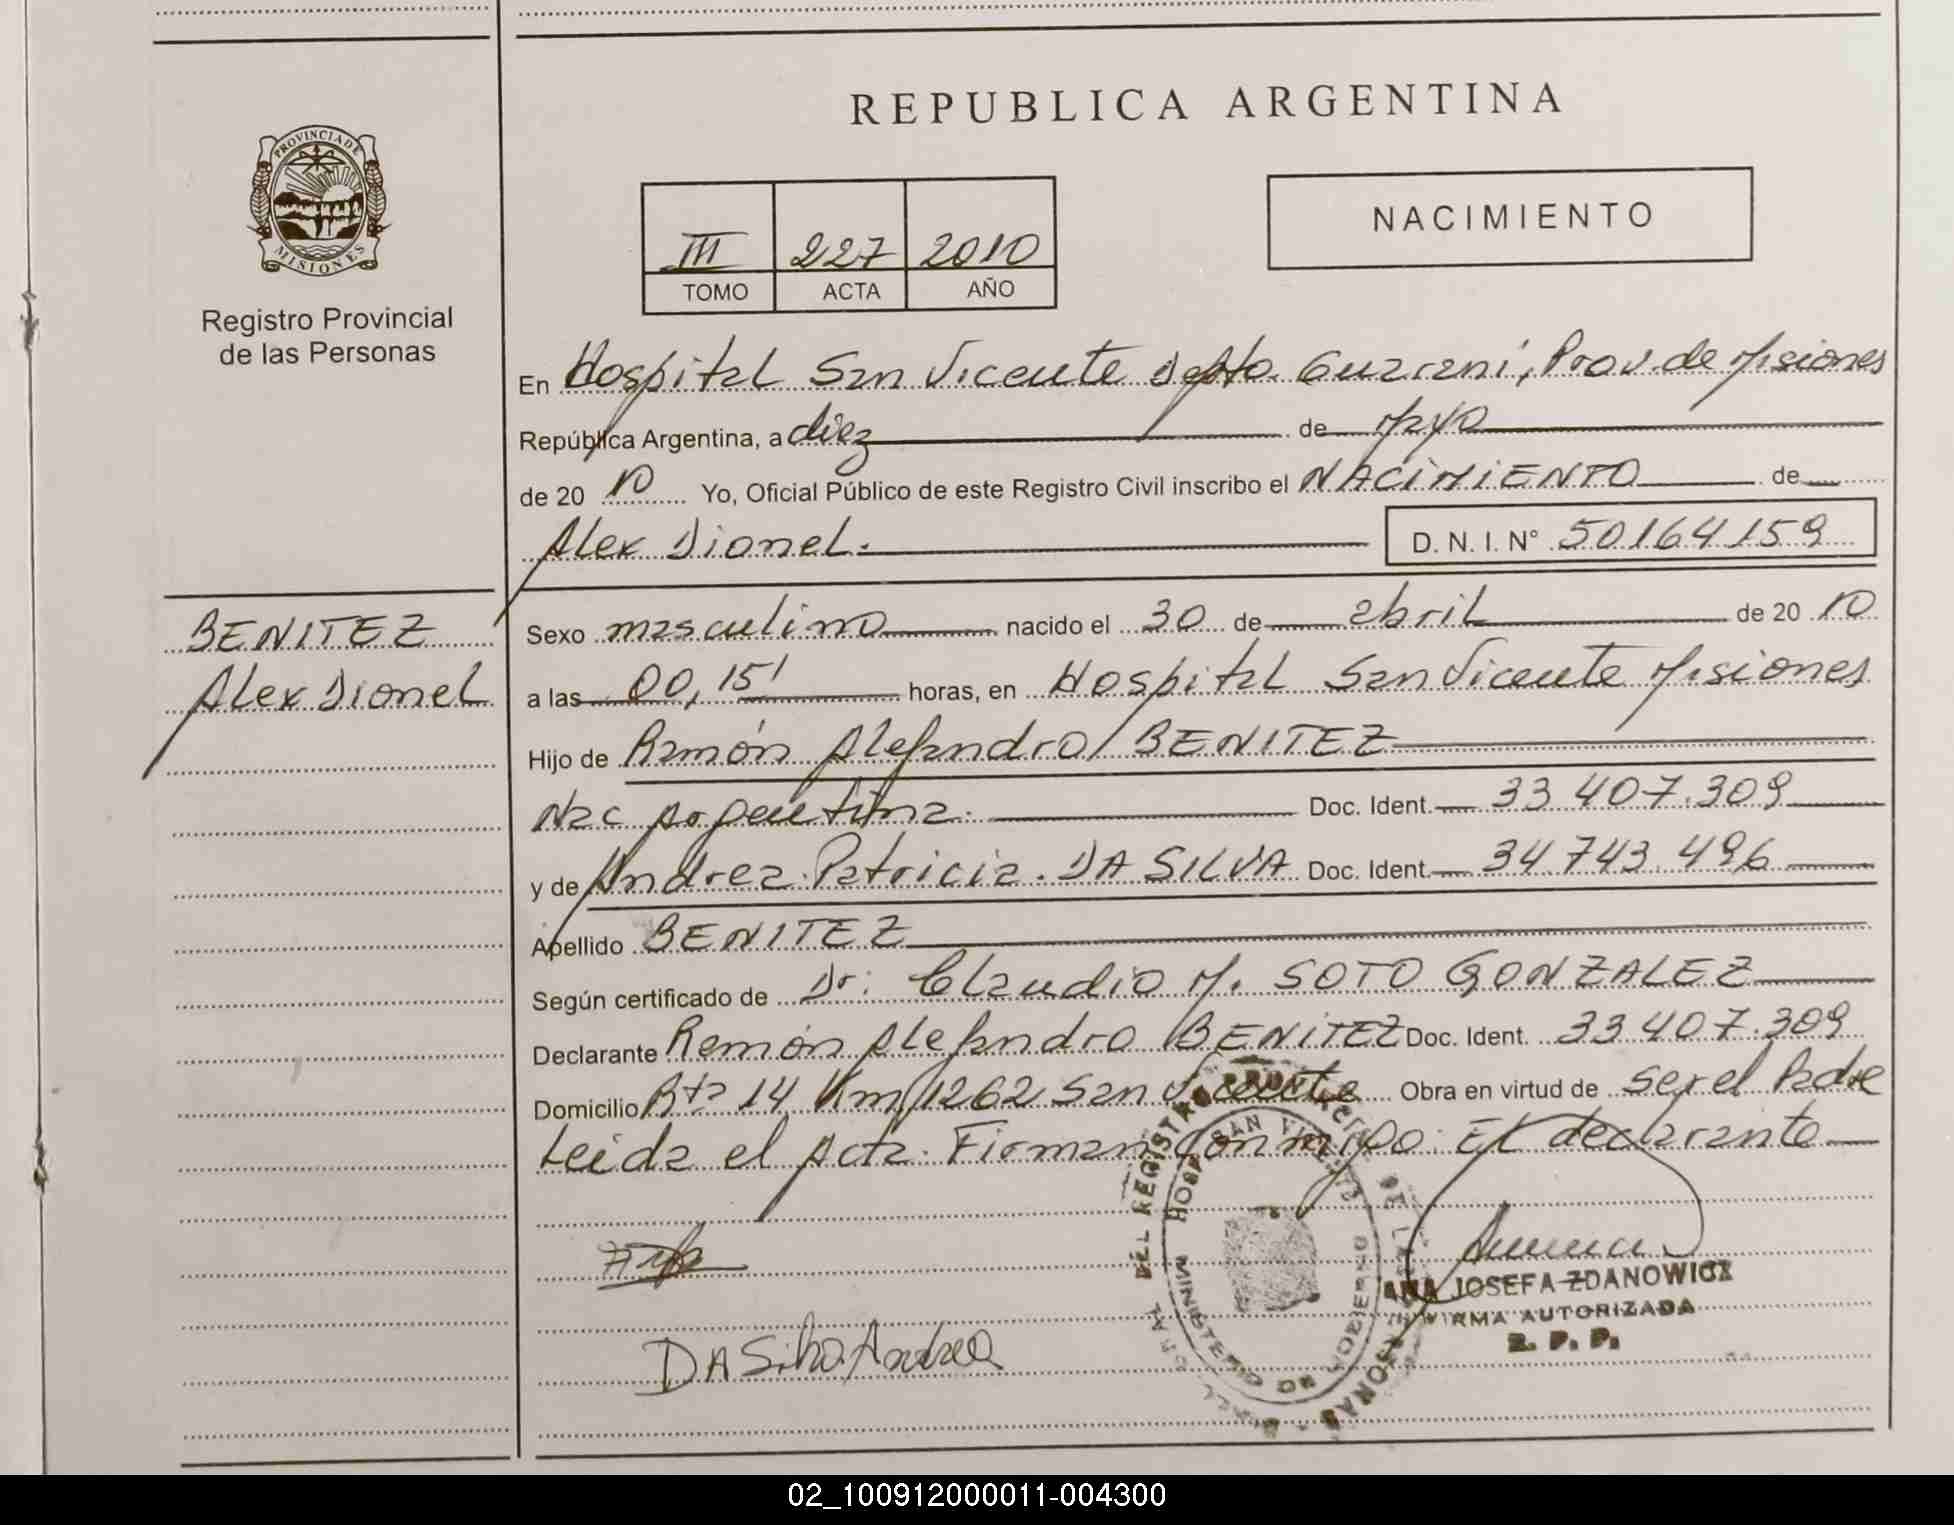 REPUBLICA ARGENTINA
PROVINCIA DE
MISIONES
Registro Provincial
de las Personas
III 227 2010
TOMO ACTA AÑO
NACIMIENTO
En Hospital San Vicente Depto. Guarani, Prov. de Misiones
República Argentina, a diez de Mayo
de 20 10 Yo, Oficial Público de este Registro Civil inscribo el NACIMIENTO de
Alex Dionel. D. N. I. N° 50164159
BENITEZ
Alex Dionel
Sexo masculino nacido el 30 de abril de 20 10
a las 00,15' horas, en Hospital San Vicente Misiones
Hijo de Ramón Alejandro BENITEZ
Nac Argentina. Doc. Ident. 33 407.309
y de Andrea Patricia. DA SILVA Doc. Ident. 34.743.496
Apellido BENITEZ
Según certificado de Dr: Claudio M. SOTO GONZALEZ
Declarante Ramón Alejandro BENITEZ Doc. Ident. 33 407.309
Domicilio Rta 14 Km 1262 San Vicente Obra en virtud de ser el Padre
Leida el Acta. Firman conmigo: El declarante
DA Silva Andrea
ANA JOSEFA ZDANOWICZ
FIRMA AUTORIZADA
R. P. P.
02_100912000011-004300